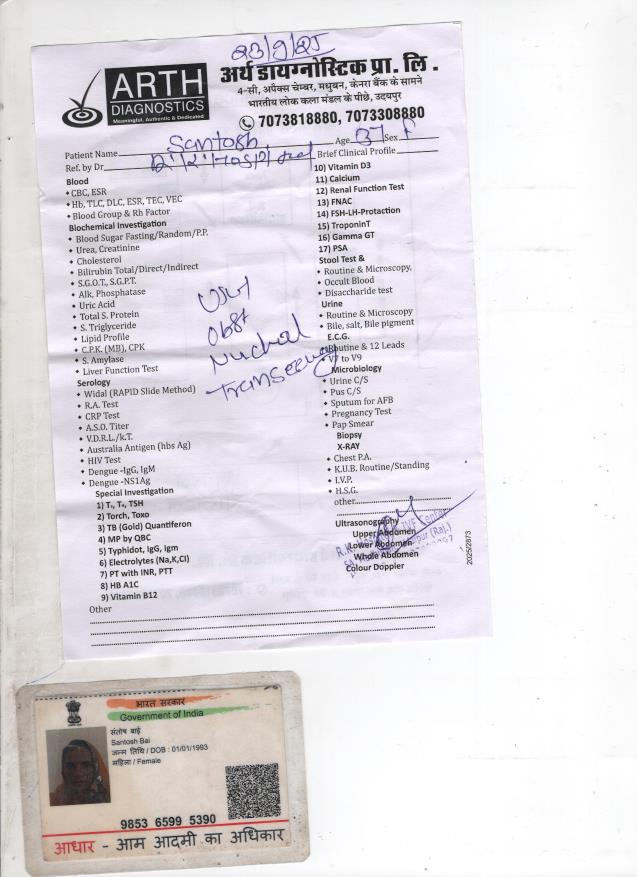 23/9/25
ARTH
DIAGNOSTICS
Meaningful, Authentic & Dedicated
अर्थ डायग्नोस्टिक प्रा. लि.
4-सी, अपैक्स चेम्बर, मधुबन, केनरा बैंक के सामने
भारतीय लोक कला मंडल के पीछे, उदयपुर
7073818880, 7073308880
Patient Name Santosh Age 37 Sex F
Ref. by Dr Brief Clinical Profile
Blood
• CBC, ESR
• Hb, TLC, DLC, ESR, TEC, VEC
• Blood Group & Rh Factor
Biochemical Investigation
• Blood Sugar Fasting/Random/P.P.
• Urea, Creatinine
• Cholesterol
• Bilirubin Total/Direct/Indirect
• S.G.O.T., S.G.P.T.
• Alk, Phosphatase
• Uric Acid
• Total S. Protein
• S. Triglyceride
• Lipid Profile
• C.P.K. (MB), CPK
• S. Amylase
• Liver Function Test
Serology
• Widal (RAPID Slide Method)
• R.A. Test
• CRP Test
• A.S.O. Titer
• V.D.R.L./k.T.
• Australia Antigen (hbs Ag)
• HIV Test
• Dengue -IgG, IgM
• Dengue -NS1Ag
Special Investigation
1) T₃, T₄, TSH
2) Torch, Toxo
3) TB (Gold) Quantiferon
4) MP by QBC
5) Typhidot, IgG, Igm
6) Electrolytes (Na,K,Cl)
7) PT with INR, PTT
8) HB A1C
9) Vitamin B12
Other
10) Vitamin D3
11) Calcium
12) Renal Function Test
13) FNAC
14) FSH-LH-Protaction
15) TroponinT
16) Gamma GT
17) PSA
Stool Test &
• Routine & Microscopy,
• Occult Blood
• Disaccharide test
Urine
• Routine & Microscopy
• Bile, salt, Bile pigment
E.C.G.
• Routine & 12 Leads
• V7 to V9
Microbiology
• Urine C/S
• Pus C/S
• Sputum for AFB
• Pregnancy Test
• Pap Smear
Biopsy
X-RAY
• Chest P.A.
• K.U.B. Routine/Standing
• I.V.P.
• H.S.G.
other
Ultrasonography
Upper Abdomen
Lower Abdomen
Whole Abdomen
Colour Doppler
2025/2873
Obst
Nuchal
भारत सरकार
Government of India
संतोष बाई
Santosh Bai
जन्म तिथि / DOB : 01/01/1993
महिला / Female
9853 6599 5390
आधार - आम आदमी का अधिकार